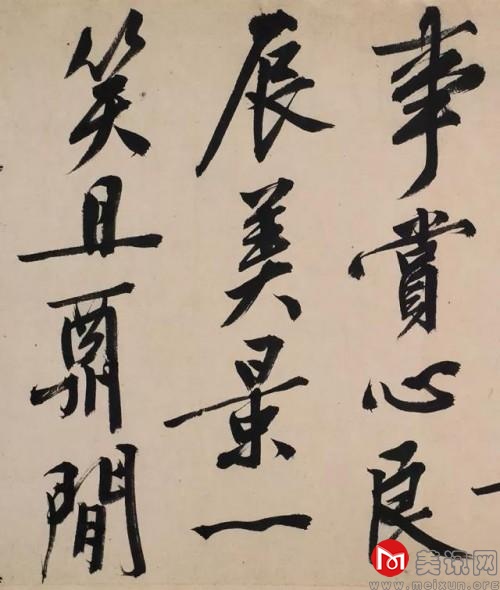 事賞心良
辰美景一
笑且酬閒
美讯网
www.meixun.org